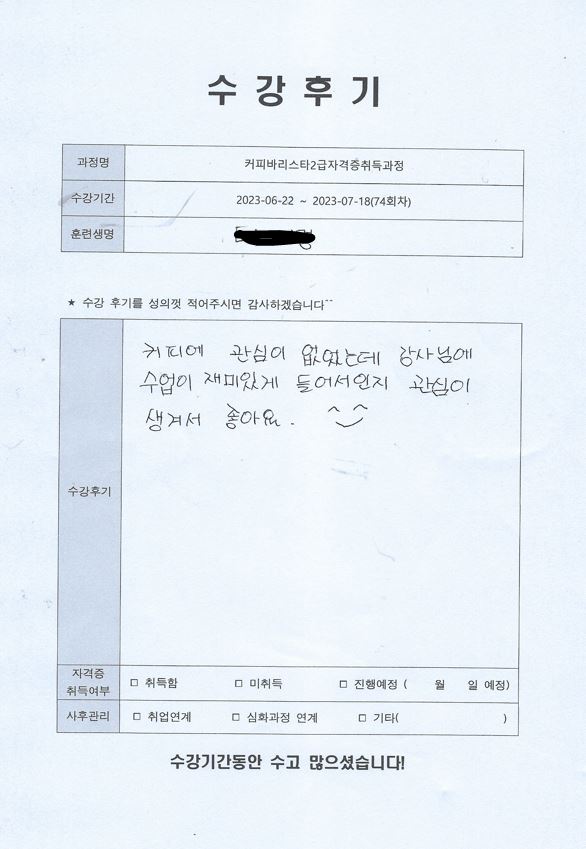 수 강 후 기
과정명 커피바리스타2급자격증취득과정
수강기간 2023-06-22 ~ 2023-07-18(74회차)
훈련생명
★ 수강 후기를 성의껏 적어주시면 감사하겠습니다^^
커피에 관심이 없었는데 강사님에
수업이 재미있게 들어서인지 관심이
생겨서 좋아요. ^^
수강후기
자격증
취득여부 □ 취득함 □ 미취득 □ 진행예정 ( 월 일 예정)
사후관리 □ 취업연계 □ 심화과정 연계 □ 기타( )
수강기간동안 수고 많으셨습니다!